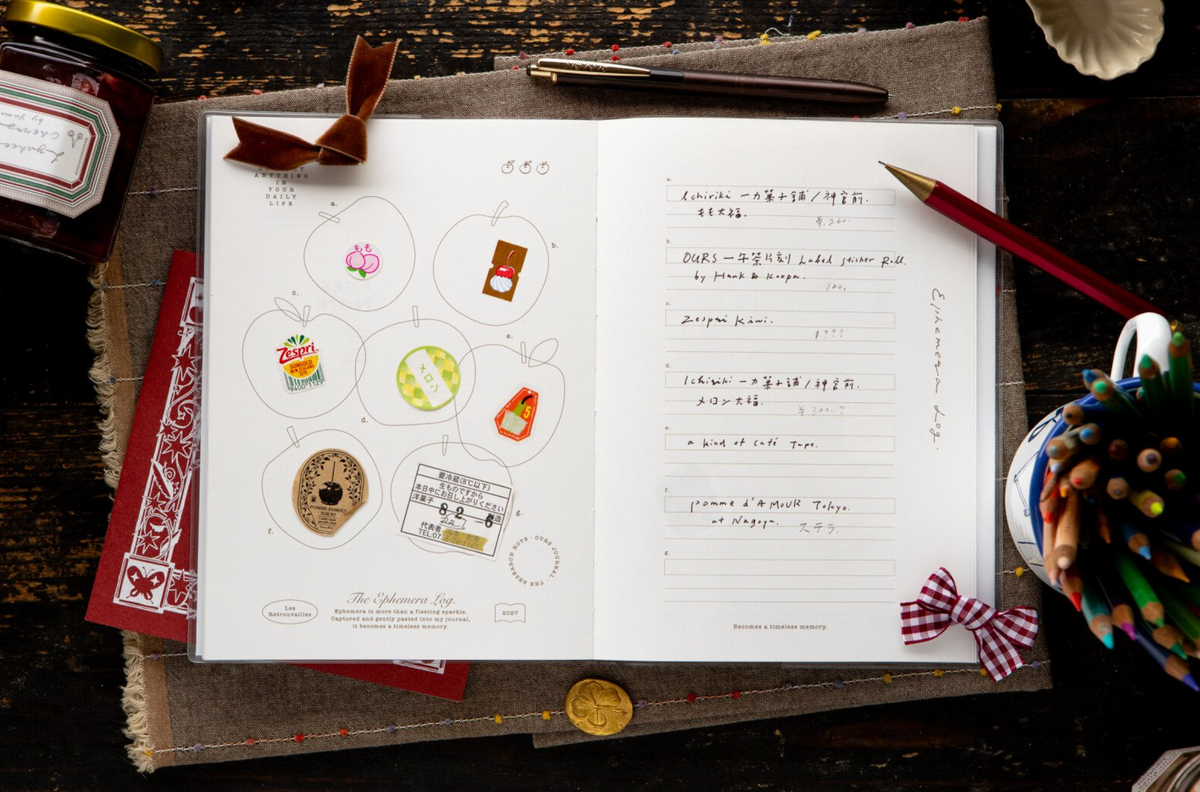 ANYTHING
IN
YOUR
DAILY
LIFE
a.
もも
b.
c.
Zespri
SUNGOLD
d.
メロン
e.
5
f.
POMME D'AMOUR
TOKYO
g.
要冷蔵(8℃以下)
生ものですから
本日中にお召し上がりください
洋菓子
8 2 - 6
製造
代表者
TEL:07
THE RESEARCH NOTE · OURS JOURNAL
Les
Retrouvailles
The Ephemera Log.
Ephemera is more than a fleeting sparkle.
Captured and gently pasted into my journal,
it becomes a timeless memory.
2027
a.
Ichiriki 一力菓子舗/神宮前.
もも大福.
b.
OURS 一午茶片刻 Label sticker Roll.
by Hank & Koopa.
c.
Zespri Kiwi.
d.
Ichiriki 一力菓子舗/神宮前.
メロン大福.
e.
a kind of Café Tape.
f.
pomme d'AMOUR Tokyo.
at Nagoya.
ステラ.
g.
Ephemera Log.
Becomes a timeless memory.